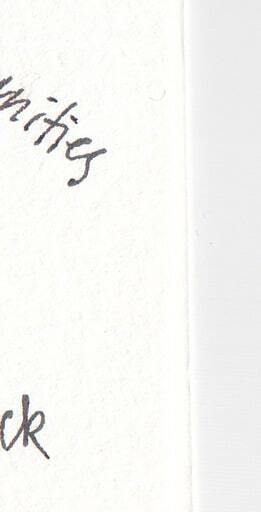 mities
ck